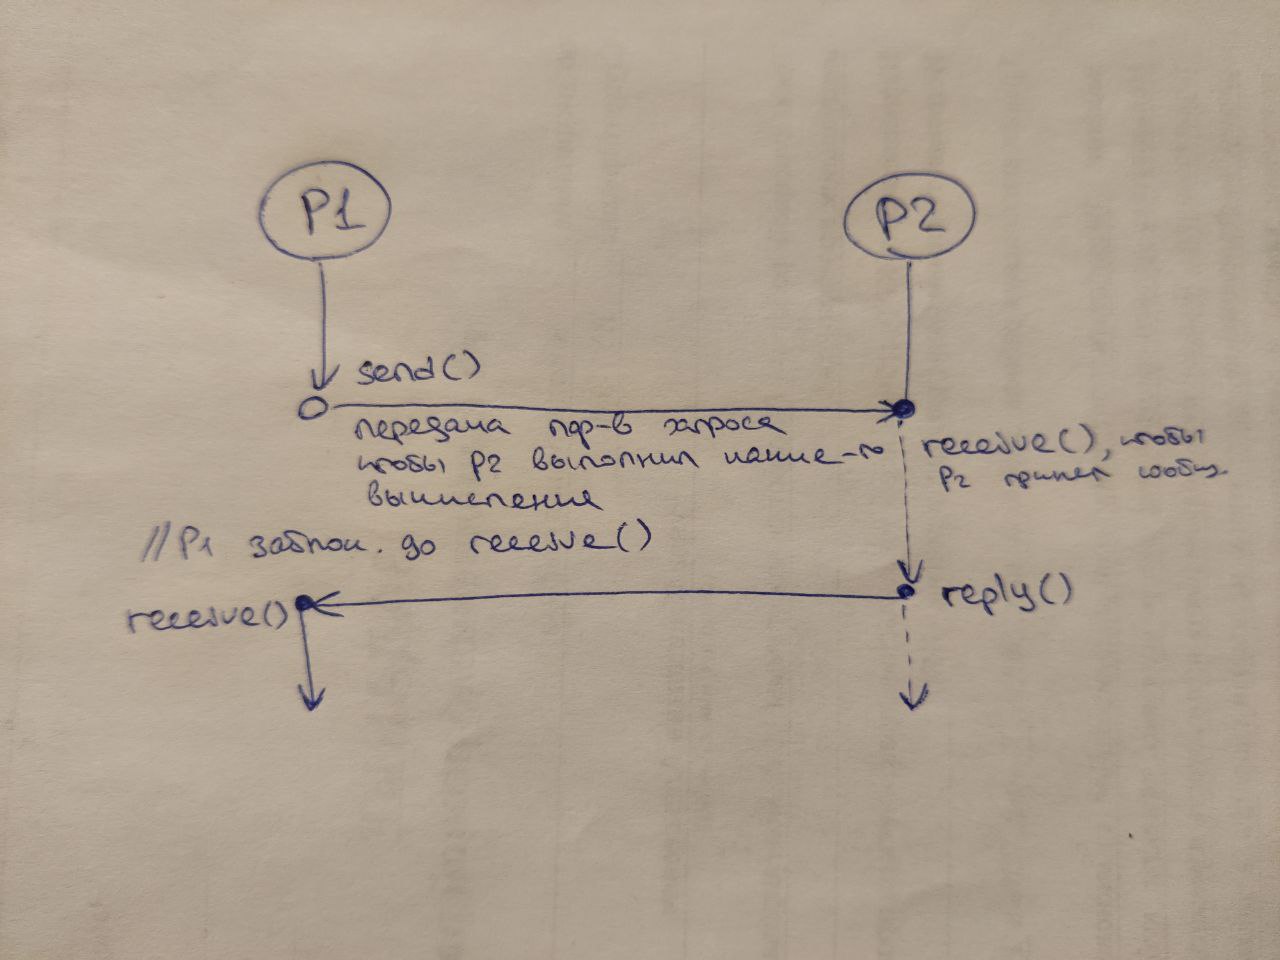 P1
P2
send()
передача инф-в запроса
чтобы P2 выполнил какие-то
вычисления
receive(), чтобы
P2 принял сообщ.
// P1 заблок. до receive()
receive()
reply()